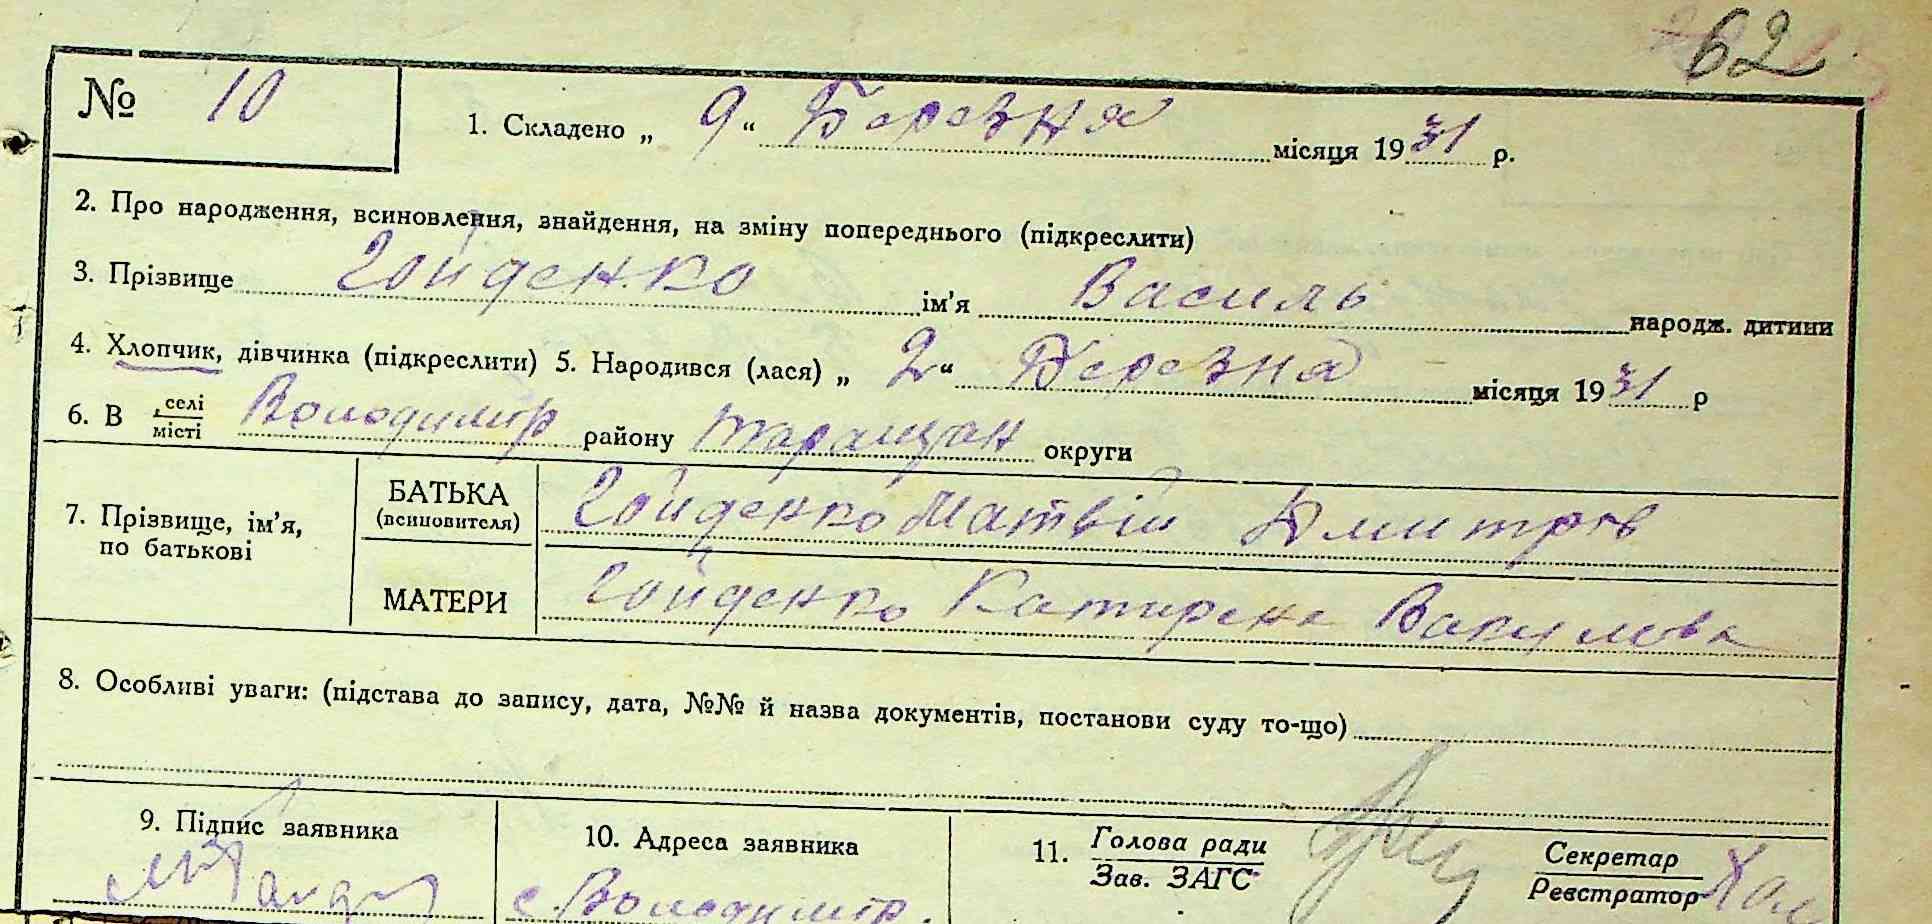 62
№ 10
1. Складено „ 9 “ Березня місяця 1931 р.
2. Про народження, всиновлення, знайдення, на зміну попереднього (підкреслити)
3. Прізвище Гойденко ім’я Василь народж. дитини
4. Хлопчик, дівчинка (підкреслити) 5. Народився (лася) „ 2 “ Березня місяця 1931 р
6. В селі місті Володимир району Таращан округи
7. Прізвище, ім’я, по батькові
БАТЬКА (всиновителя) Гойденко Матвій Дмитров
МАТЕРИ Гойденко Катирена Вакулова
8. Особливі уваги: (підстава до запису, дата, №№ й назва документів, постанови суду то-що)
9. Підпис заявника
10. Адреса заявника
с. Володимир.
11. Голова ради
Зав. ЗАГС
Секретар
Реєстратор